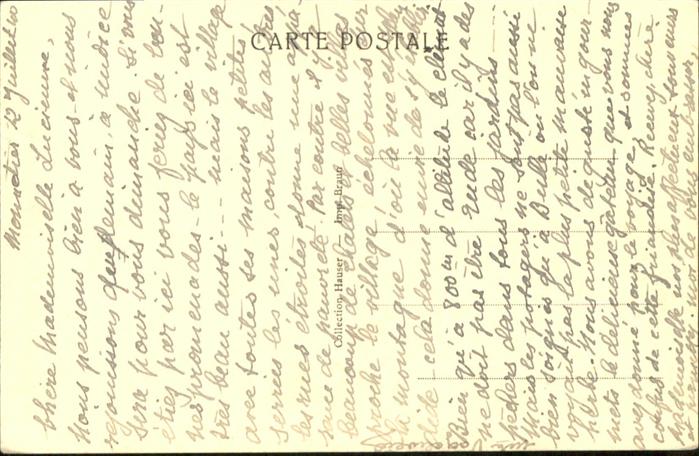 CARTE POSTALE
Collection Hauser — Impr. Braun
12 Juillet
Chère Mademoiselle Lucienne,
Nous pensons bien à vous et nous
rejouissons demain, à
pour vous demander. Si vous
étiez par ici vous feriez de bon-
nes promenades - le pays ici est
très beau aussi - - - mais le village
avec toutes ses maisons petites
serrées les unes contre les autres
les rues étroites donne une appa-
rence de pauvreté. Par contre il y a
beaucoup de chalets et belles villas
proche le village échelonnés sur
la montagne d'où la vue est splen-
dide - cela donne envie de s'y
Bien qu'à 800 m d'altitude le climat
ne doit pas être rude car il y a des
pêchers dans tous les jardins -
Mais les potagers ne sont pas aussi
bien soignés qu'à Bulle où l'on ne
voyait pas la plus petite mauvaise
herbe. Nous avons déjusté en gour-
mets le délicieux gâteau que vous nous
avez donné pour le voyage et sommes
de cette friandise. Recevez chère
Mademoiselle nos bien affectueux